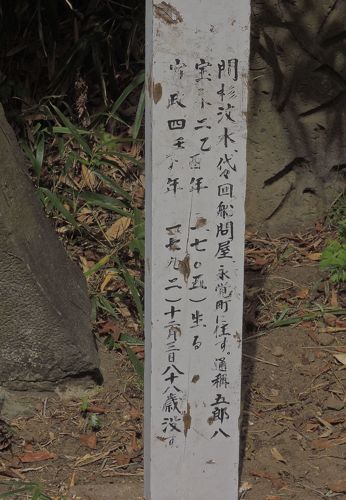 間杉汶水代々回船問屋、永覚町に住す。通称五郎八
宝永二乙酉年(一七〇五)生る
寛政四壬子年(一七九二)十二月三日八十八歳没す。